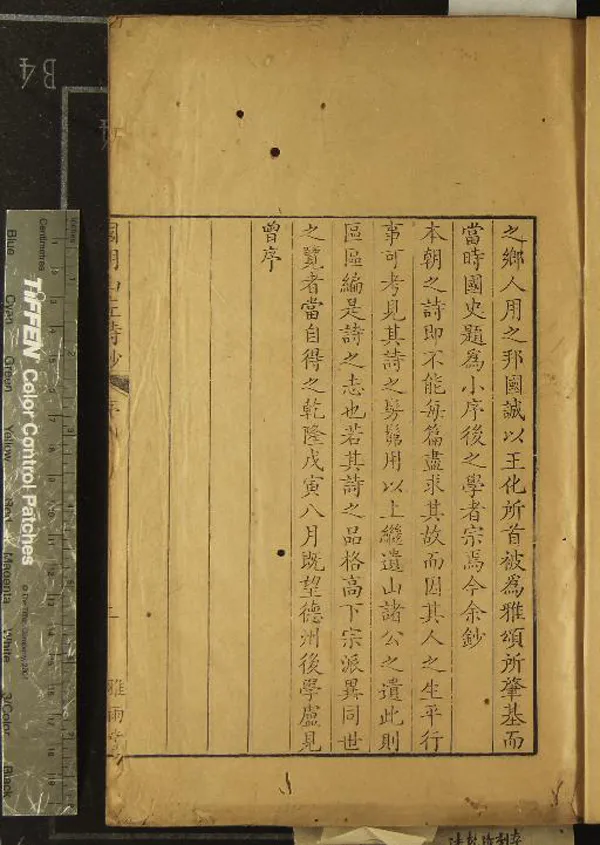 之鄉人用之邦國誠以王化所首被為雅頌所肇基而
當時國史題為小序後之學者宗焉今余鈔
本朝之詩即不能每篇盡求其故而因其人之生平行
事可考見其詩之髣髴用以上繼遺山諸公之遺此則
區區編是詩之志也若其詩之品格高下宗派異同世
之覽者當自得之乾隆戊寅八月既望德州後學盧見
曾序
國朝山左詩鈔
序
雅雨堂
B4
Inches
Centimetres
TIFFEN Color Control Patches
Blue
Cyan
Green
Yellow
Red
Magenta
White
3/Color
Black